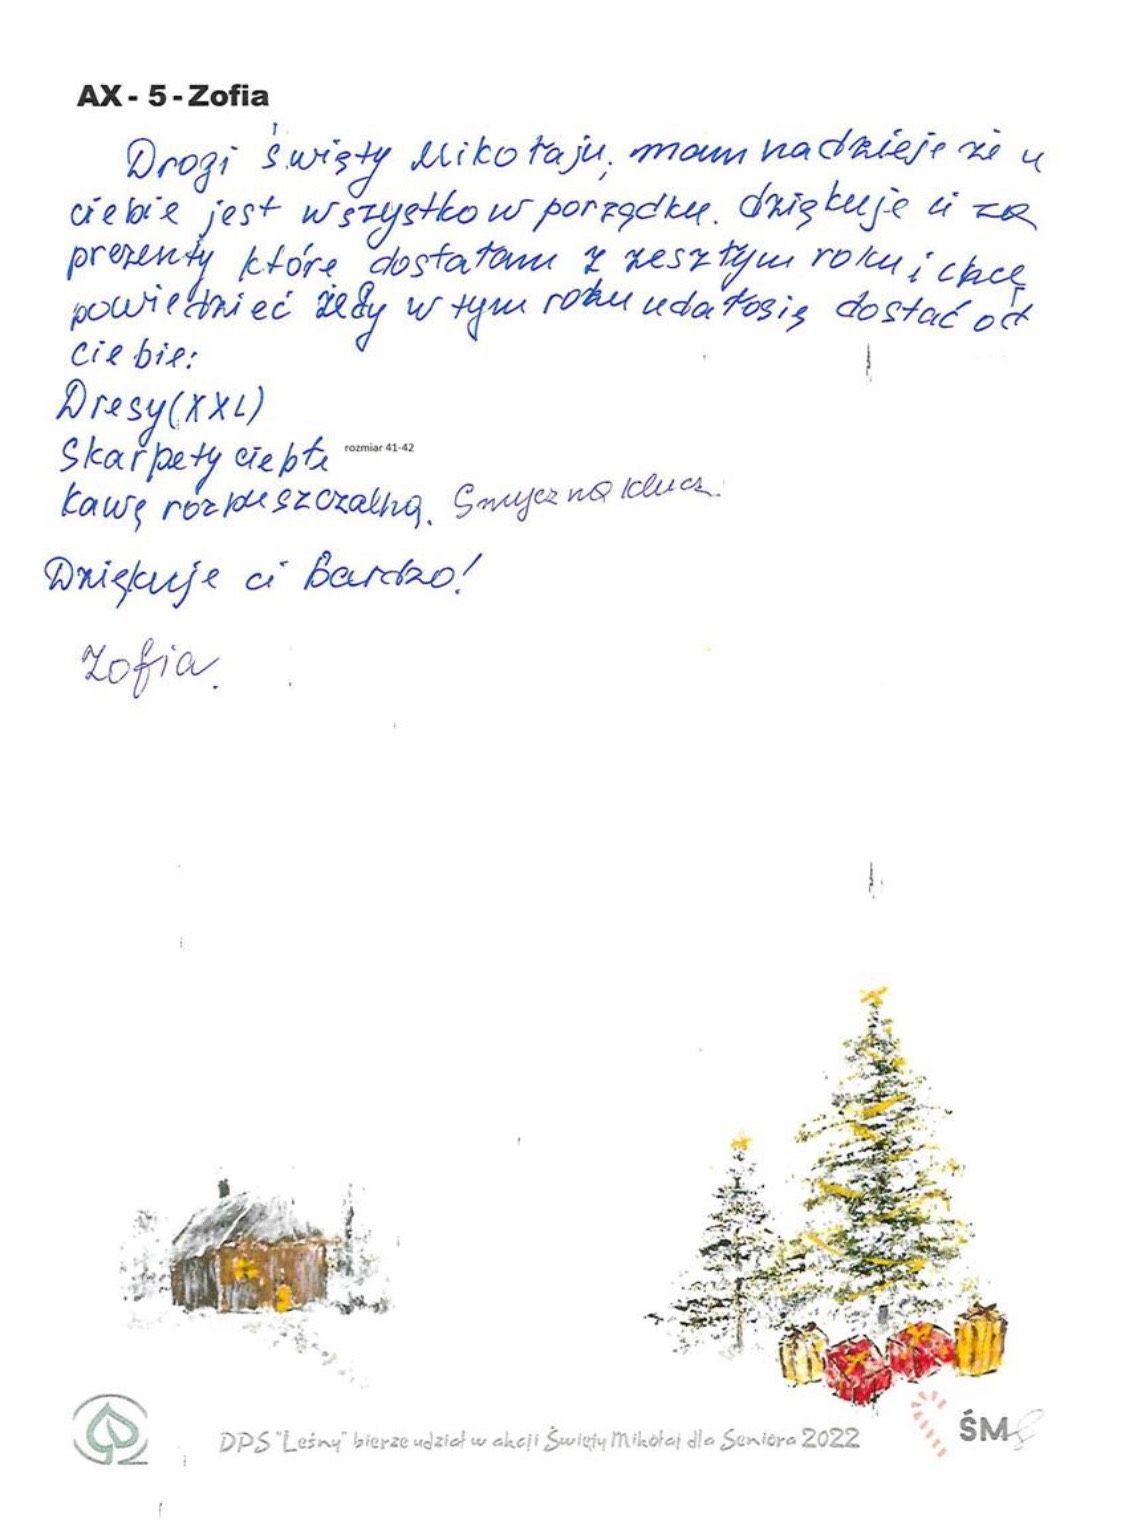 AX - 5 - Zofia
Drogi święty Mikołaju, mam nadzieje że u
ciebie jest wszystko w porządku. dziękuje ci za
prezenty które dostałam z zeszłym roku i chcę
powiedzieć żeby w tym roku udało się dostać od
ciebie:
Dresy (XXL)
Skarpety ciepłe rozmiar 41-42
kawę rozpuszczalną. Smycz na klucz.
Dziękuje ci bardzo!
Zofia.
DPS "Leśny" bierze udział w akcji Święty Mikołaj dla Seniora 2022
ŚM